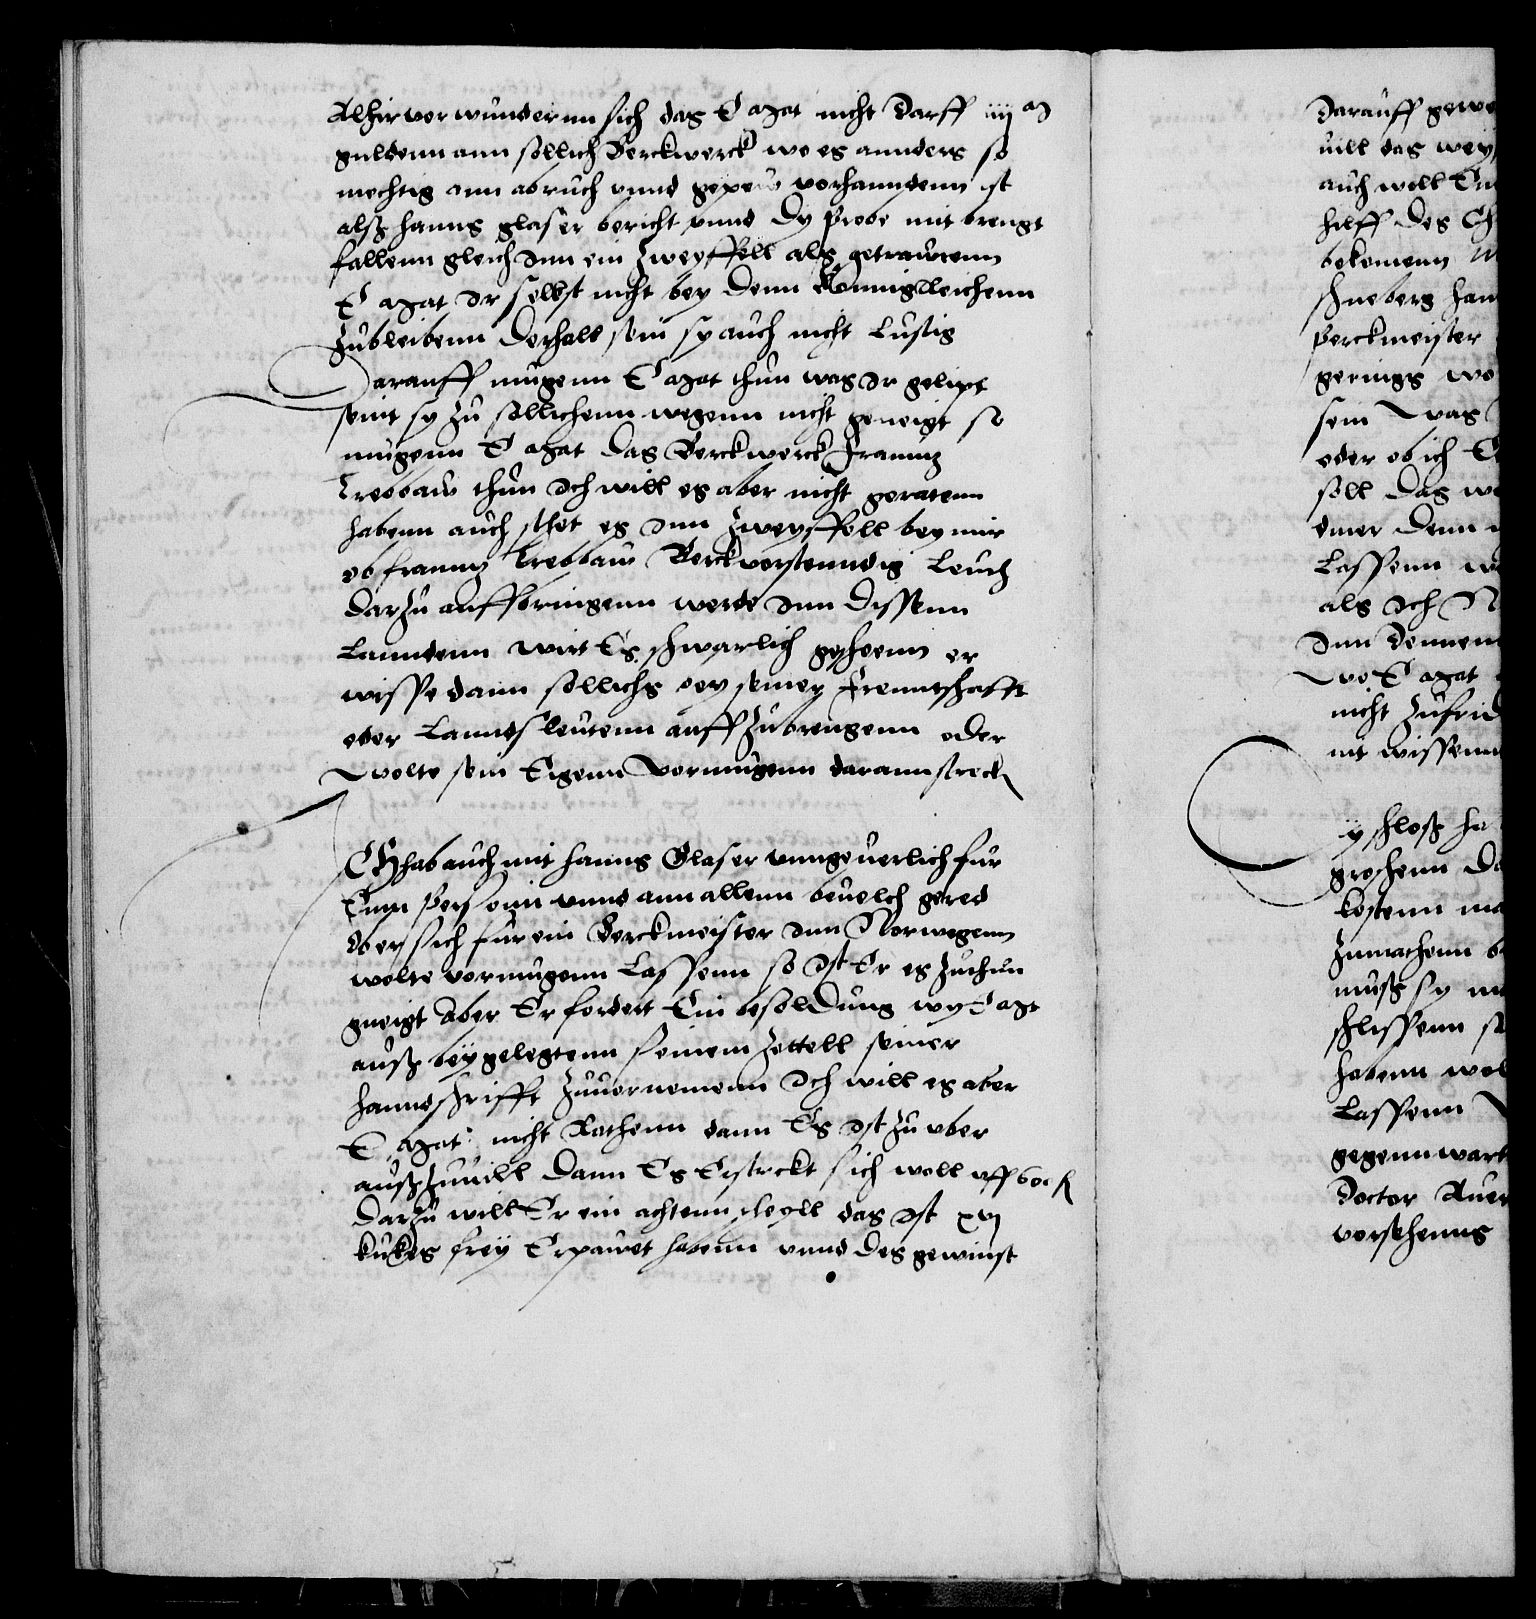 Alhir vorwundernn sich das E Mat nicht darff iiij M
guldenn ann sollich Berckwerck wo es annders so
mechtig ann abruch vnnd gepew vorhanndenn ist
alß hanns glaser bericht vnnd dy probe mit brengt
fallenn gleich Inn ein Zweyffell als getrawtenn
E Mat Ir selbst nicht bey denn Konnigkleichenn
Zubleibenn derhalb sein sy auch nicht Lustig
Darauff mugenn E Mat thun was Ir gelipt
seint sy Zu sollichenn wegenn nicht geneigt so
mugenn E Mat das Berckwerck frannz
Trebbaw thun Ich will es aber nicht geratenn
habenn auch stehet es Inn Zweyffell bey mir
ob frannz Trebbaw Berckvorstenndig Leuth
darzu auffbringenn werde Inn dissenn
Lanndenn wirt Es schwarlich gescheenn er
wisse dann sollichs bey seiner freuntschafft
oder Lanndsleutenn auffzubrengenn oder
wolte sein Eigenn vormugenn darann streck

Ich hab auch mit hanns Glaser vnngeuerlich fur
Einn Person vnnd ann allenn beuelch gered
ob er sich fur ein Berckmeister Inn Norwegenn
wolte vormugenn Lassenn so Ist Er es Zuthun
gneigt Aber Er fordert Ein besoldung wy E Mt
auß beygelegtenn seinem Zettell seiner
hanndschrifft Zuuornemenn Ich will es aber
E Mat: nicht Rathenn dann Es Ist Zu vber
auß Zuuill dann Es Erstreckt sich woll vff 600 fl
darzu will Er ein achtenn theyll das Ist xvj
kukes frey Erpauet habenn vnnd des gewinst

darauff
vill das
auch will
hilff des
bekomenn
schneberg
perckmeister
gerings
sein was
oder ob ich
soll das
denn
Lassenn
als Ich
Inn
wo E Mat
nicht Zufrid
mit wissenn

schloß
groschenn
kostenn
Zumachenn
muß sy
schlissenn
habenn
Lassenn
gegennwart
doctor
vorsehenns